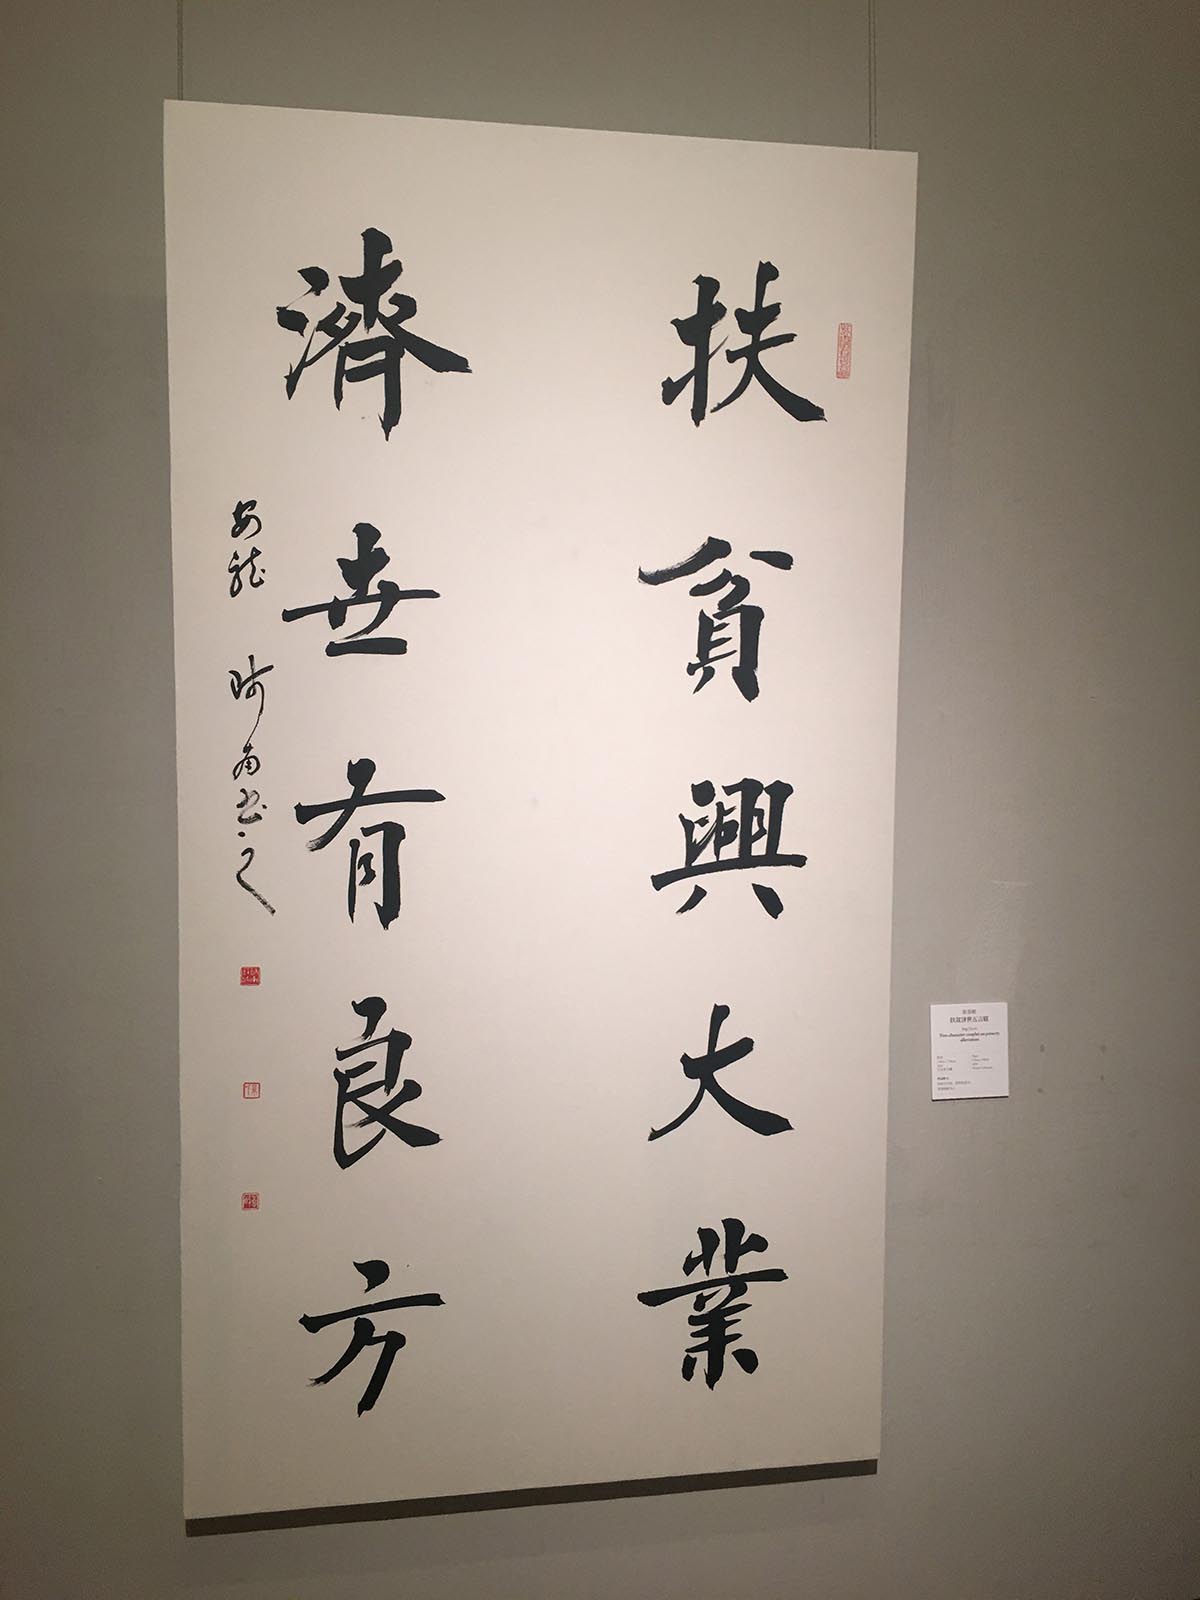 扶貧興大業
濟世有良方
安龍
書
扶貧濟世五言聯
Five-character couplet on poverty
alleviation